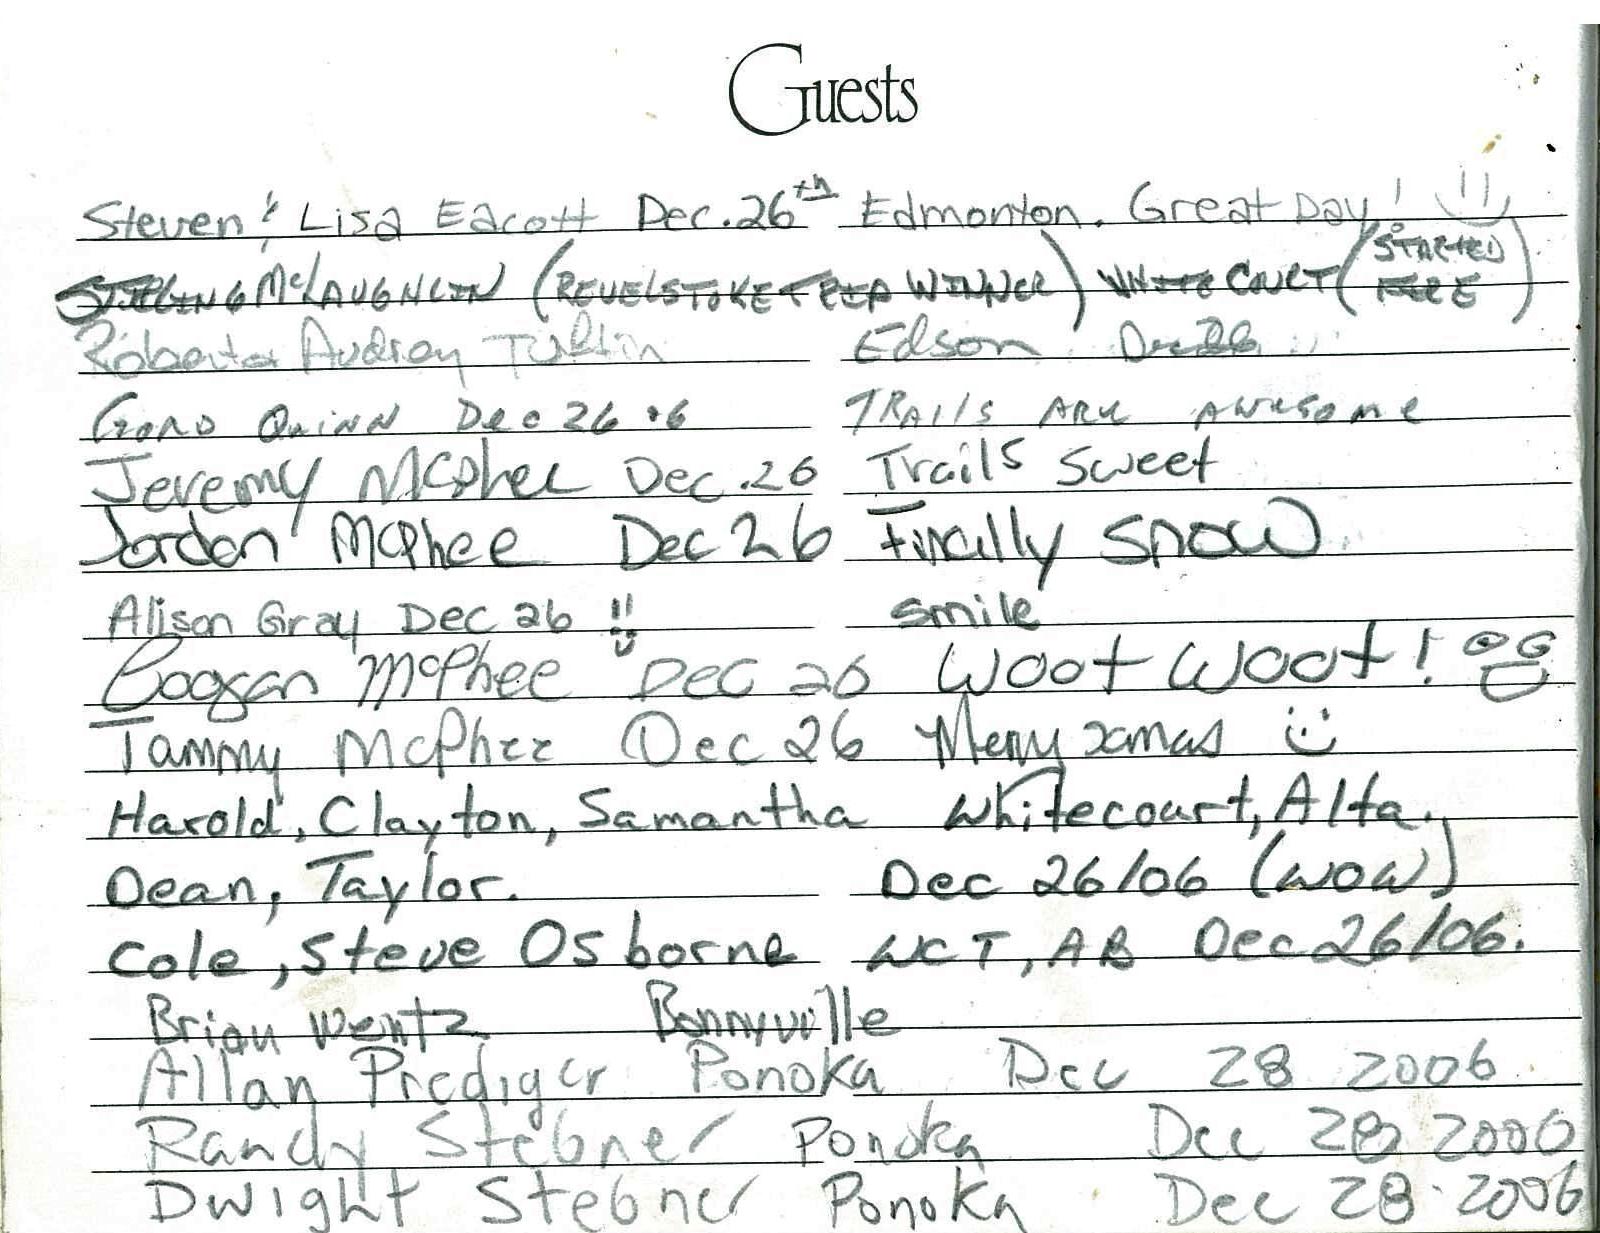 Guests
Steven & Lisa Eacott Dec. 26th Edmonton. Great Day!
McLAUGHLIN (REVELSTOKE TRIP WINNER) WHITECOURT (STARTED FIRE)
Roberta Audrey Edson Dec 26
GORD QUINN Dec 26 06 TRAILS ARE AWESOME
Jeremy McPhee Dec. 26 Trails Sweet
Jordan McPhee Dec 26 Finally snow
Alison Gray Dec 26 !! smile
McPhee DEC 26 Woot Woot!
Tammy McPhee Dec 26 Merry xmas
Harold, Clayton, Samantha Whitecourt, Alta.
Dean, Taylor. Dec 26/06 (wow)
Cole, Steve Osborne WCT, AB Dec 26/06.
Brian Wentz Bonnyville
Allan Prediger Ponoka Dec 28 2006
Randy Stebner Ponoka Dec 28 2006
Dwight Stebner Ponoka Dec 28 2006